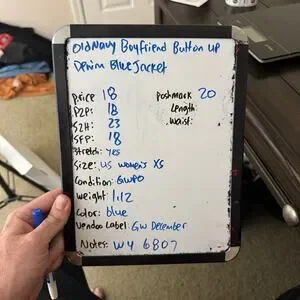 Old Navy Boyfriend Button up
Denim Blue Jacket
Price 18
Postmark 20
P2P: 18
Length:
S2H: 23
Waist:
SFP: 18
Stretch: Yes
Size: US Women's XS
Condition: GWPO
Weight 1.12
Color: blue
Vendoo Label: GW December
Notes: WY 6807